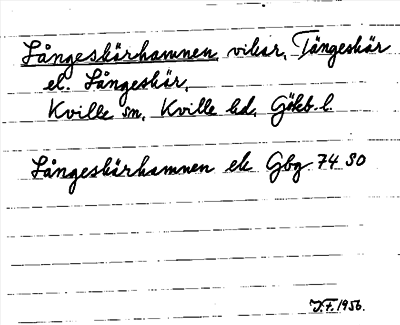 Långeskärhamnen, vikar, Tångeskär
el. Långeskär,
Kville sn, Kville hd, Göteb. l.
Långeskärhamnen ek Gbg 74 SO
1956.